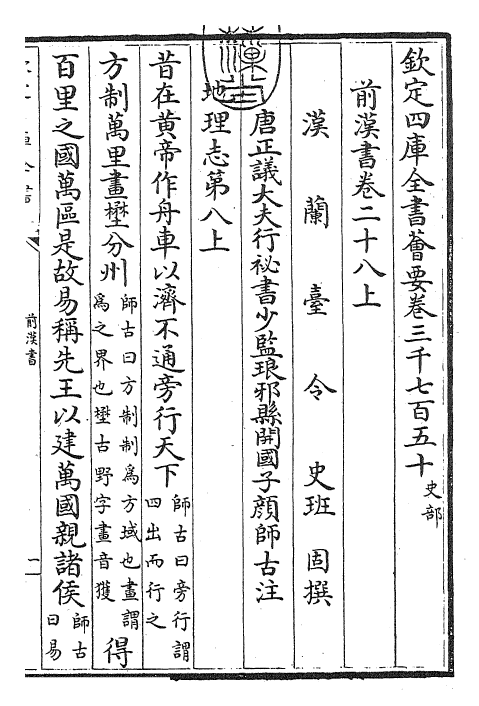 欽定四庫全書薈要卷三千七百五十史部
前漢書卷二十八上
漢蘭臺令史班固撰
唐正議大夫行祕書少監琅邪縣開國子顔師古注
地理志第八上
昔在黄帝作舟車以濟不通旁行天下師古曰旁行謂四出而行之
方制萬里畫壄分州師古曰方制制為方域也畫謂為之界也壄古野字畫音獲得
百里之國萬區是故易稱先王以建萬國親諸侯師古曰易
前漢書
一